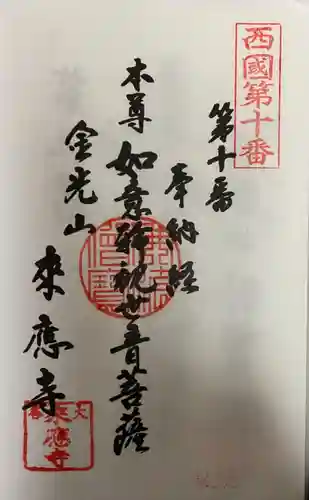 西國第十番
第十番
奉納経
本尊 如意輪観世音菩薩
金光山
來應寺
佛法僧寶
來應寺